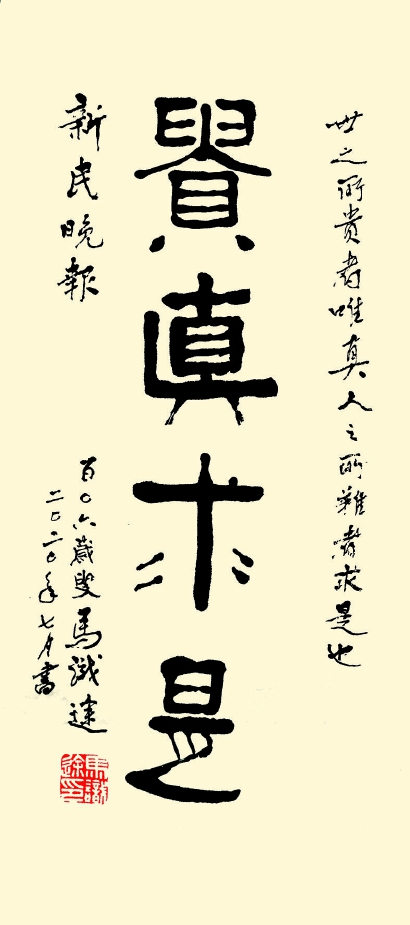 世之所贵者唯真人之所难者求是也
貴真求是
新民晚報
百〇六歲叟馬識途
二〇二〇年七月書
馬識途印